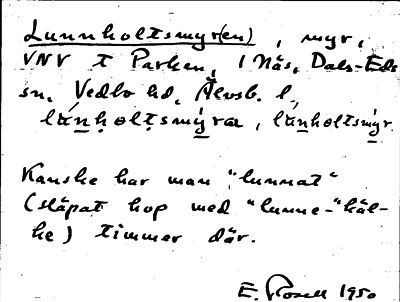 Lunnholtsmyr(en), myr,
VNV t Parken, i Näs, Dals-Eds
sn, Vedbo hd, Älvsb. l,
lúṇhọltṣmýra, lúṇholtsmýr
Kanske har man "lunnat"
(släpat hop med "lunne-"häl-
ke) timmer där.
E. Rosell 1950